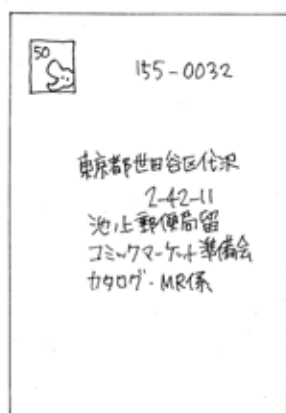 50
155-0032
東京都世田谷区代沢
2-42-11
池上郵便局留
コミックマーケット準備会
カタログ・MR係